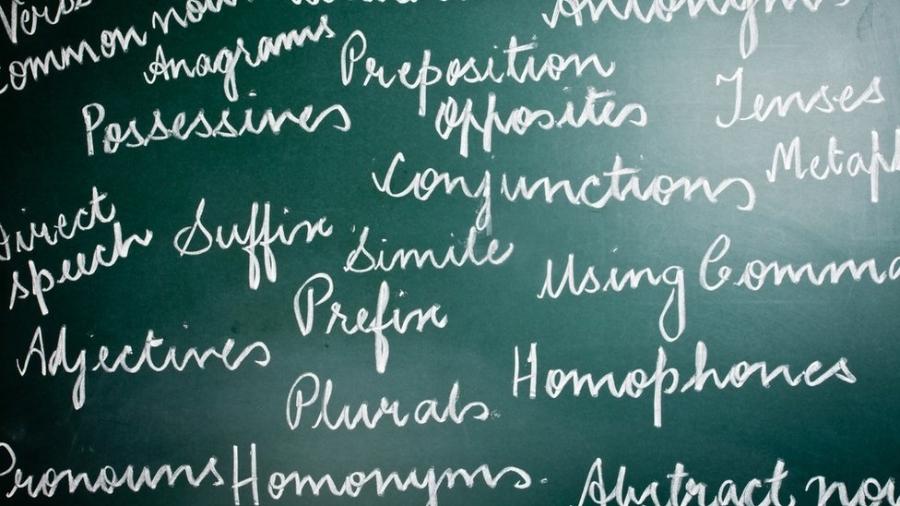 Common
Antonyms
Anagrams
Preposition
Possessives
Opposites
Tenses
Conjunctions
Metaph
Direct
speech
Suffix
Simile
Using Comma
Prefix
Adjectives
Homophones
Plurals
Pronouns
Homonyms.
Abstract nou